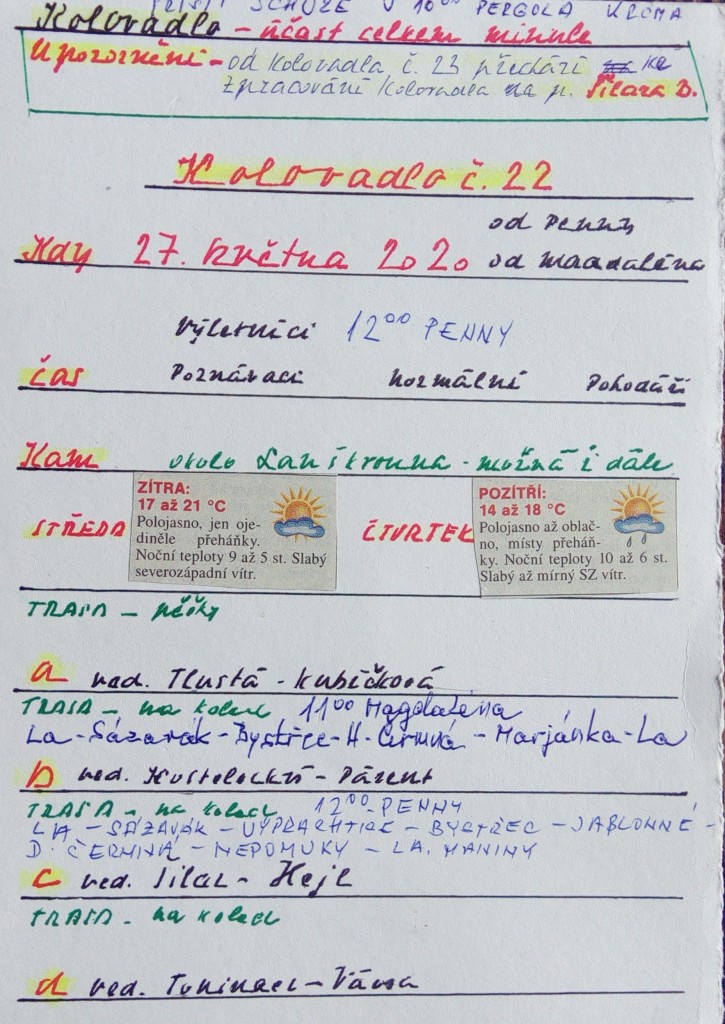 PŘÍŠTÍ SCHŮZE V 10⁰⁰ PERGOLA KRČMA
Kolovadlo - účast celkem minule
Upozornění - od Kolovadla č. 23 přechází ke
zpracování Kolovadla na p. Šilara B.
Kolovadlo č. 22
od Penny
Kdy 27. května 2020 od Magdaléna
Výletníci 12⁰⁰ PENNY
Čas Poznávací Normální Pohodáři
Kam okolo Lanškrouna - možná i dále
STŘEDA
ZÍTRA:
17 až 21 °C
Polojasno, jen oje-
diněle přeháňky.
Noční teploty 9 až 5 st. Slabý
severozápadní vítr.
ČTVRTEK
POZÍTŘÍ:
14 až 18 °C
Polojasno až oblač-
no, místy přeháň-
ky. Noční teploty 10 až 6 st.
Slabý až mírný SZ vítr.
TRASA - pěšky
a ved. Tlustá - Kubíčková
TRASA - na kolech 11⁰⁰ Magdaléna
La - Sázavák - Bystřec - H. Čermná - Marjánka - La
b ved. Kosteleckÿ - Parent
TRASA - na kolech 12⁰⁰ - PENNY
LA - SÁZAVÁK - VÝPRACHTICE - BYSTŘEC - JABLONNÉ -
D. ČERMNÁ - NEPOMUKY - LA. MANINY
c ved. Šilar - Hejl
TRASA - na kolech
d ved.